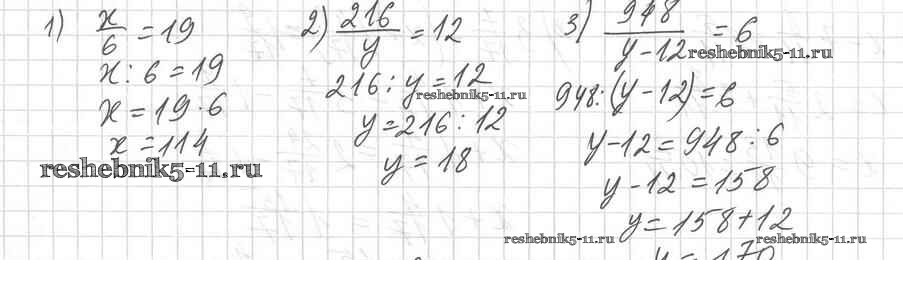 1) x/6 = 19
x : 6 = 19
x = 19 · 6
x = 114
reshebnik5-11.ru
2) 216/y = 12
216 : y = 12
reshebnik5-11.ru
y = 216 : 12
y = 18
3) 948/(y - 12) = 6
reshebnik5-11.ru
948 : (y - 12) = 6
y - 12 = 948 : 6
y - 12 = 158
y = 158 + 12
reshebnik5-11.ru reshebnik5-11.ru
y = 170